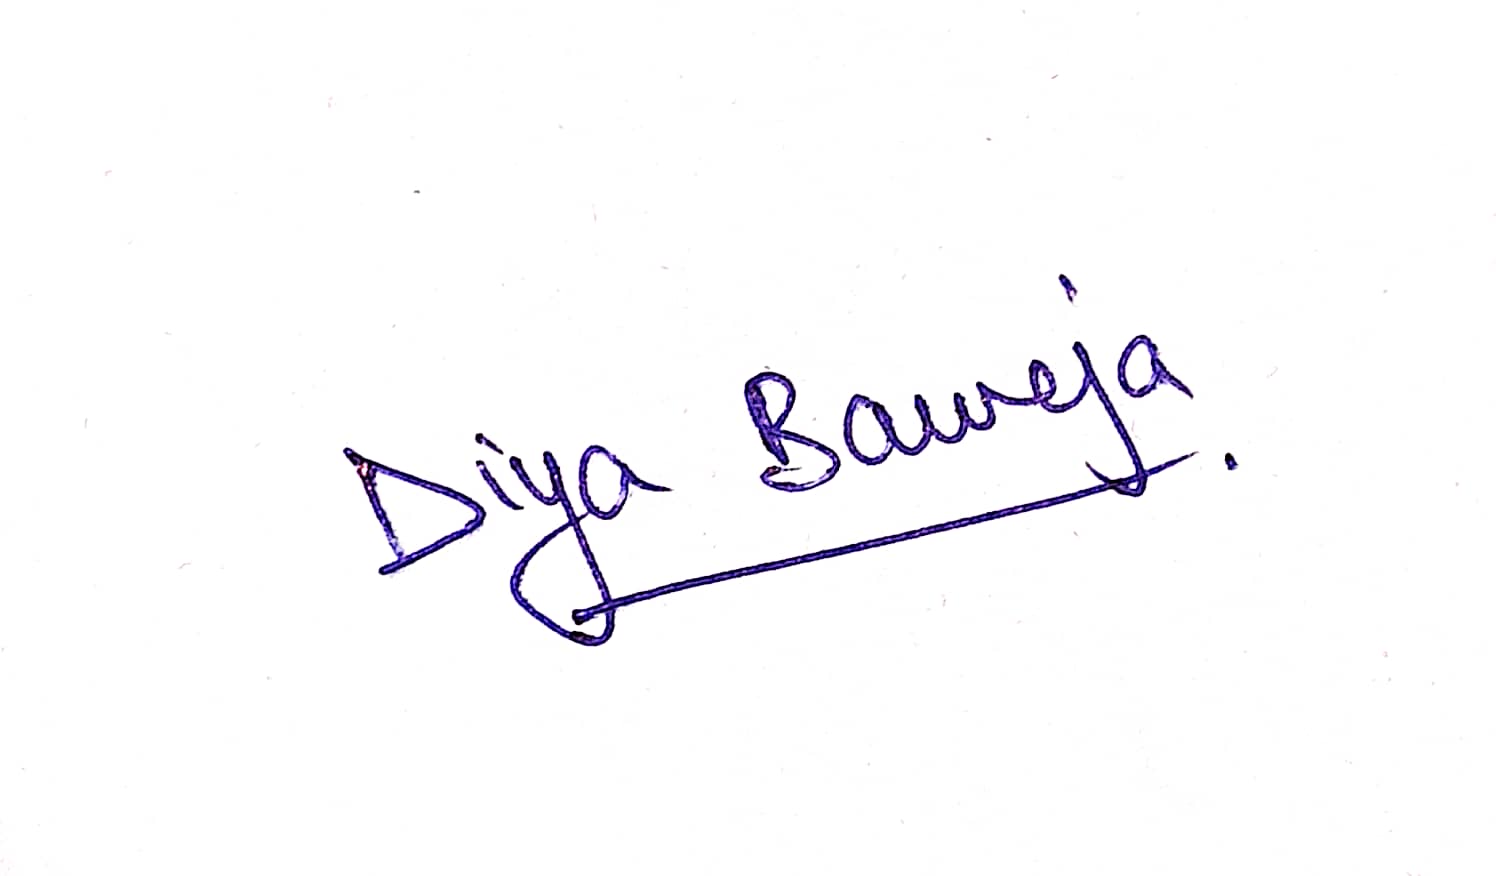 Diya Baweja.